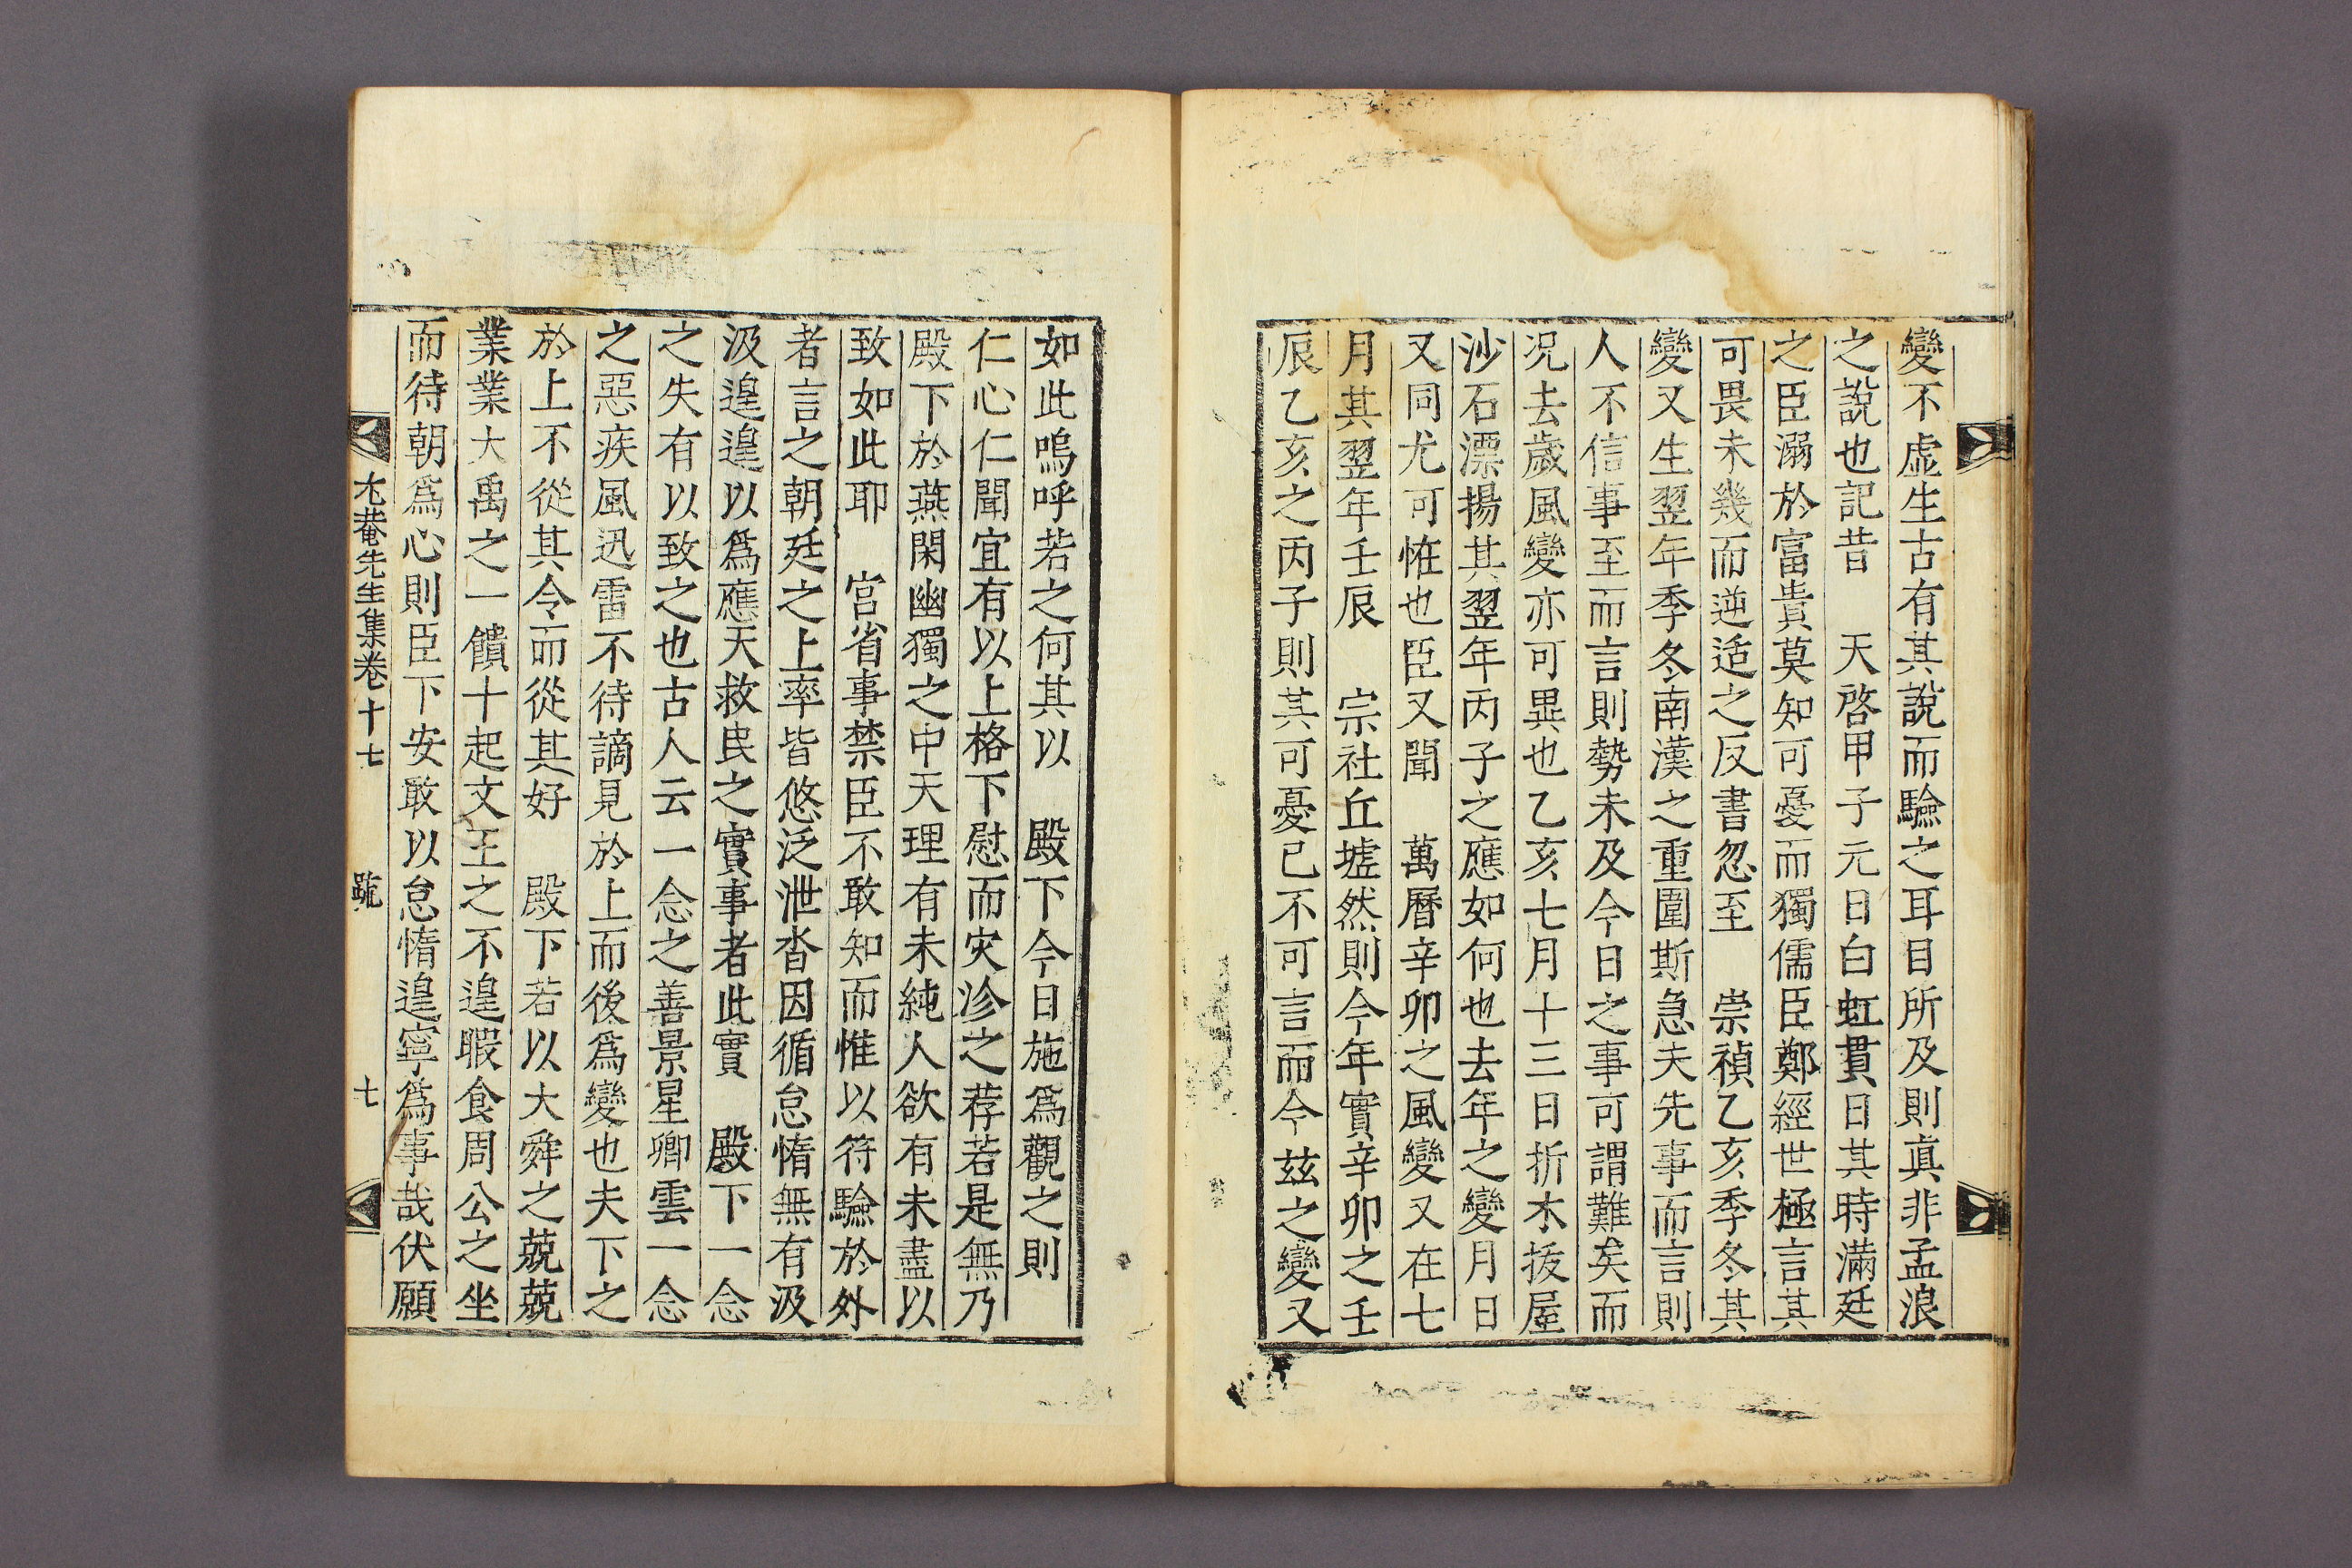 變不虛生古有其說而驗之耳目所及則真非孟浪
之說也記昔　天啓甲子元日白虹貫日其時滿廷
之臣溺於富貴莫知可憂而獨儒臣鄭經世極言其
可畏未幾而逆适之反書忽至　崇禎乙亥季冬其
變又生翌年季冬南漢之重圍斯急夫先事而言則
人不信事至而言則勢未及今日之事可謂難矣而
况去歲風變亦可異也乙亥七月十三日折木拔屋
沙石漂揚其翌年丙子之應如何也去年之變月日
又同尤可恠也臣又聞　萬曆辛卯之風變又在七
月其翌年壬辰　宗社丘墟然則今年實辛卯之壬
辰乙亥之丙子則其可憂已不可言而今玆之變又
如此嗚呼若之何其以　殿下今日施爲觀之則
仁心仁聞宜有以上格下慰而灾沴之荐若是無乃
殿下於燕閑幽獨之中天理有未純人欲有未盡以
致如此耶　宮省事禁臣不敢知而惟以符驗於外
者言之朝廷之上率皆悠泛泄沓因循怠惰無有汲
汲遑遑以爲應天救民之實事者此實　殿下一念
之失有以致之也古人云一念之善景星卿雲一念
之惡疾風迅雷不待謫見於上而後爲變也夫下之
於上不從其令而從其好　殿下若以大舜之兢兢
業業大禹之一饋十起文王之不遑暇食周公之坐
而待朝爲心則臣下安敢以怠惰遑寧爲事哉伏願
尤菴先生集卷十七　疏　七